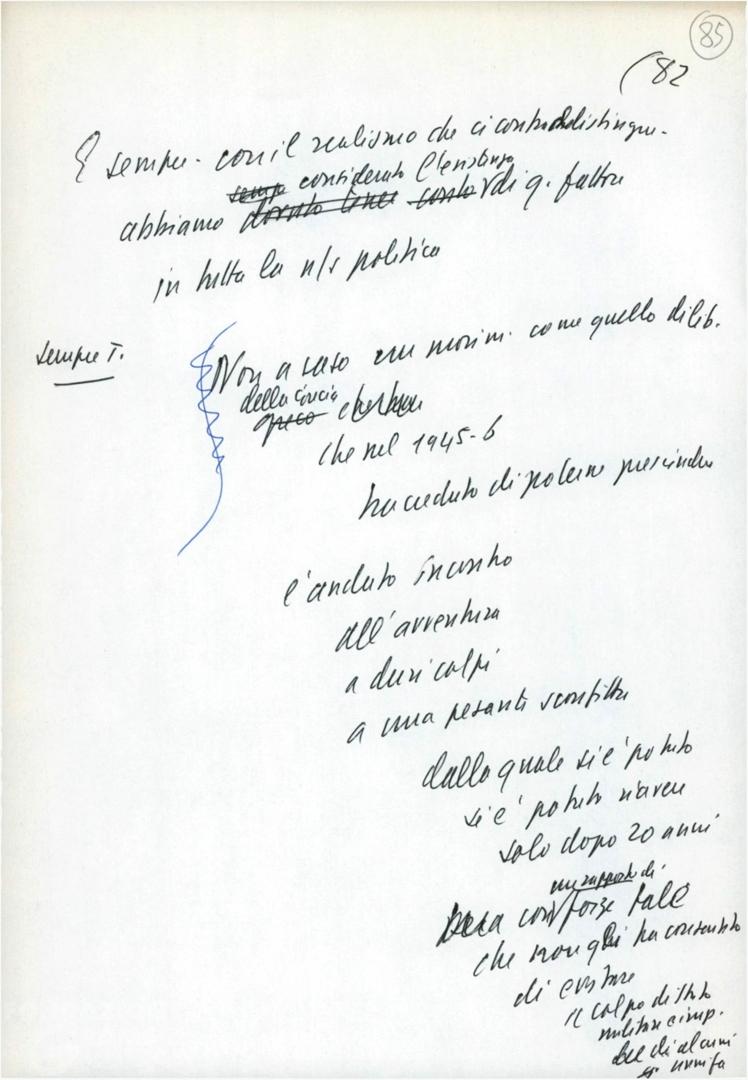 85
(82
E sempre - con il realismo che ci contraddistingue -
sempre considerato l'esistenza
abbiamo dovuto tener conto di q. fattore
in tutta la n/s politica
sempre T.
Non a caso un movim. come quello di lib.
della Grecia
greco
che nel 1945-6
ha creduto di poterne prescindere
è andato incontro
all'avventura
a duri colpi
a una pesante sconfitta
dalla quale si è potuto
si è potuto riavere
solo dopo 20 anni
un rapporto di
ma con forze tale
che non gli ha consentito
di evitare
il colpo di stato
militare e imp.
di alcuni